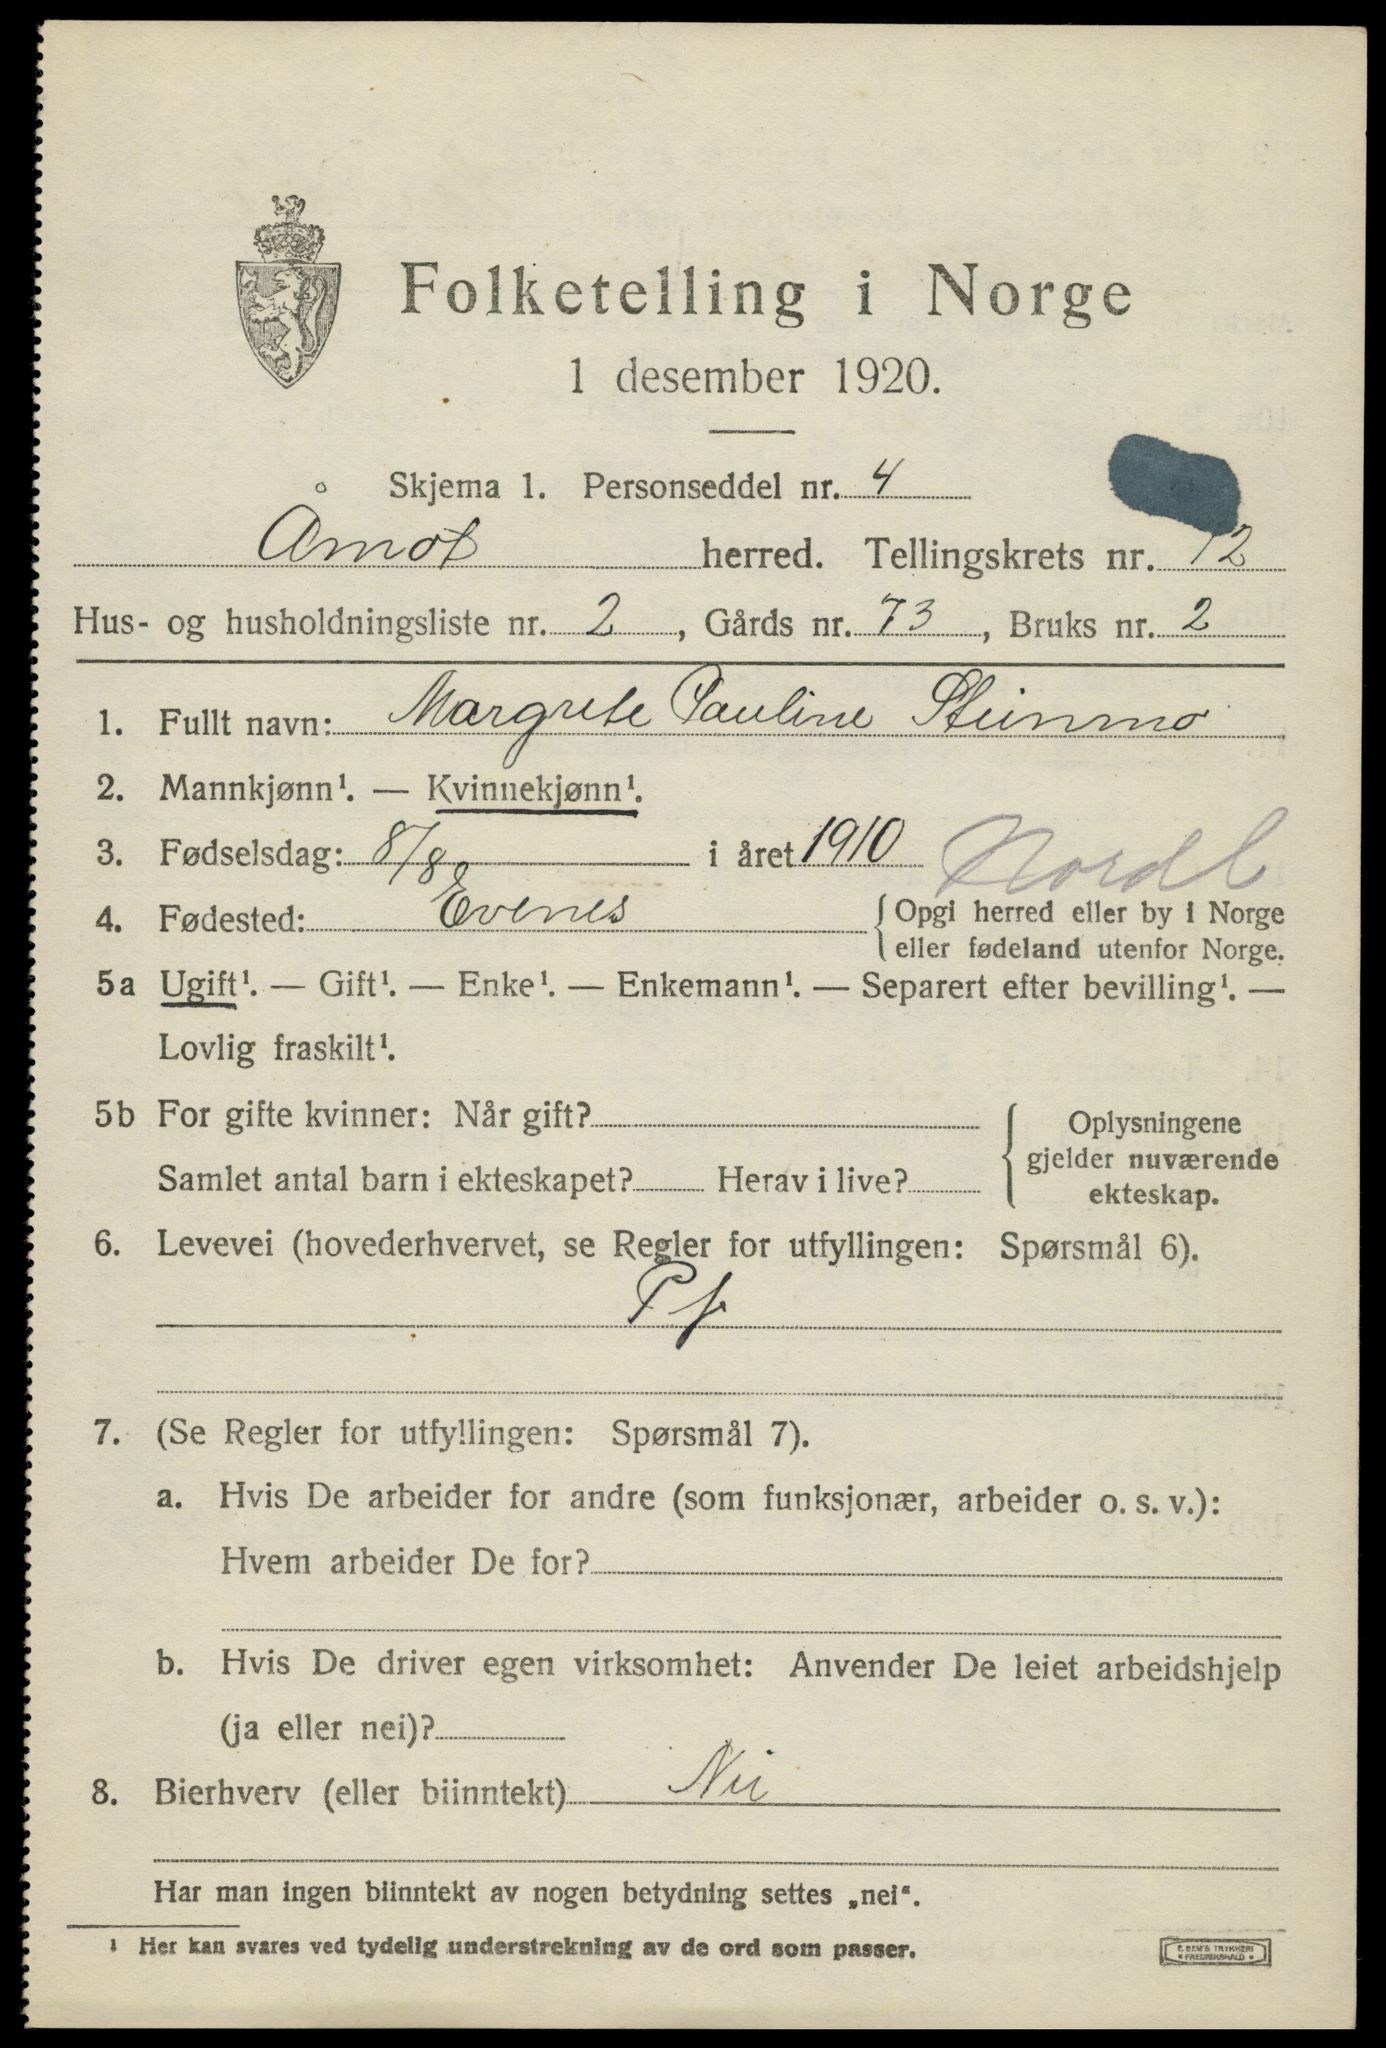 Folketelling i Norge
1 desember 1920.
Skjema 1. Personseddel nr. 4
Åmot herred. Tellingskrets nr. 12
Hus- og husholdningsliste nr. 2, Gårds nr. 73, Bruks nr. 2
1. Fullt navn: Margrete Pauline Steinmo
2. Mannkjønn¹. — Kvinnekjønn¹.
3. Fødselsdag: 8/8 i året 1910 Nordl
4. Fødested: Evenes {Opgi herred eller by i Norge
eller fødeland utenfor Norge.
5a Ugift¹. — Gift¹. — Enke¹. — Enkemann¹. — Separert efter bevilling¹. —
Lovlig fraskilt¹.
5b For gifte kvinner: Når gift?
Samlet antal barn i ekteskapet? Herav i live?
Oplysningene
gjelder nuværende
ekteskap.
6. Levevei (hovederhvervet, se Regler for utfyllingen: Spørsmål 6).
Pf
7. (Se Regler for utfyllingen: Spørsmål 7).
a. Hvis De arbeider for andre (som funksjonær, arbeider o. s. v.):
Hvem arbeider De for?
b. Hvis De driver egen virksomhet: Anvender De leiet arbeidshjelp
(ja eller nei)?
8. Bierhverv (eller biinntekt) Nei
Har man ingen biinntekt av nogen betydning settes „nei“.
¹ Her kan svares ved tydelig understrekning av de ord som passer.
E. SEM'S TRYKKERI
• FREDRIKSHALD •